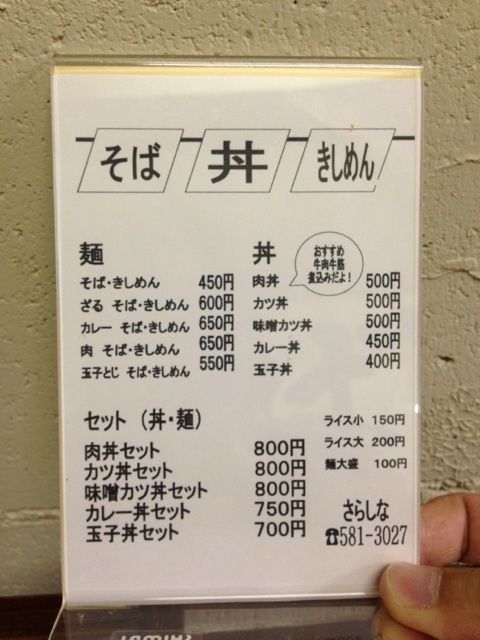 そば 丼 きしめん
麺
そば・きしめん 450円
ざる そば・きしめん 600円
カレー そば・きしめん 650円
肉 そば・きしめん 650円
玉子とじ そば・きしめん 550円
丼
おすすめ
牛肉牛筋
煮込みだよ!
肉丼 500円
カツ丼 500円
味噌カツ丼 500円
カレー丼 450円
玉子丼 400円
セット (丼・麺)
肉丼セット 800円
カツ丼セット 800円
味噌カツ丼セット 800円
カレー丼セット 750円
玉子丼セット 700円
ライス小 150円
ライス大 200円
麺大盛 100円
さらしな
☎581-3027